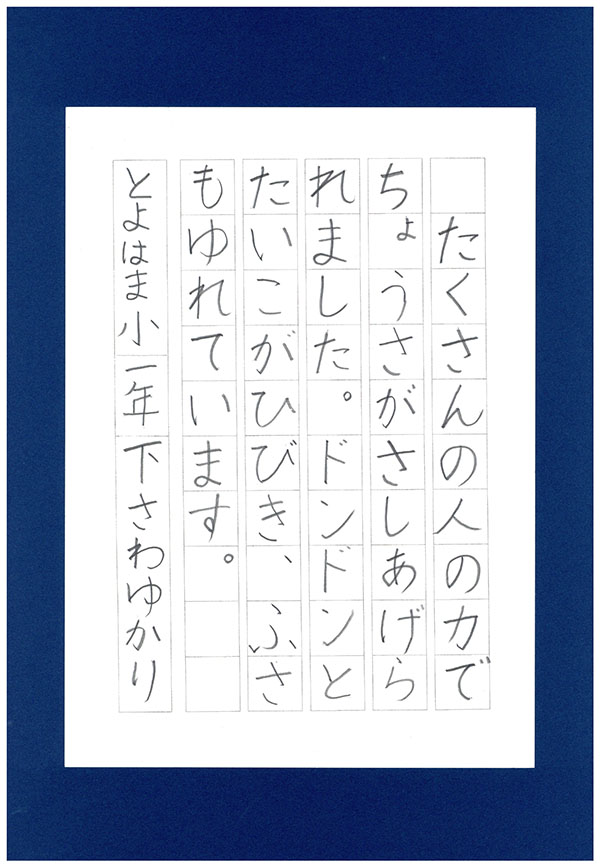 たくさんの人の力で
ちょうさがさしあげら
れました。ドンドンと
たいこがひびき、ふさ
もゆれています。
とよはま小一年下さわゆかり